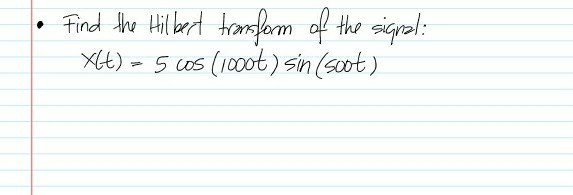 • Find the Hilbert transform of the signal:
X(t) = 5 cos (1000t) sin (500t)